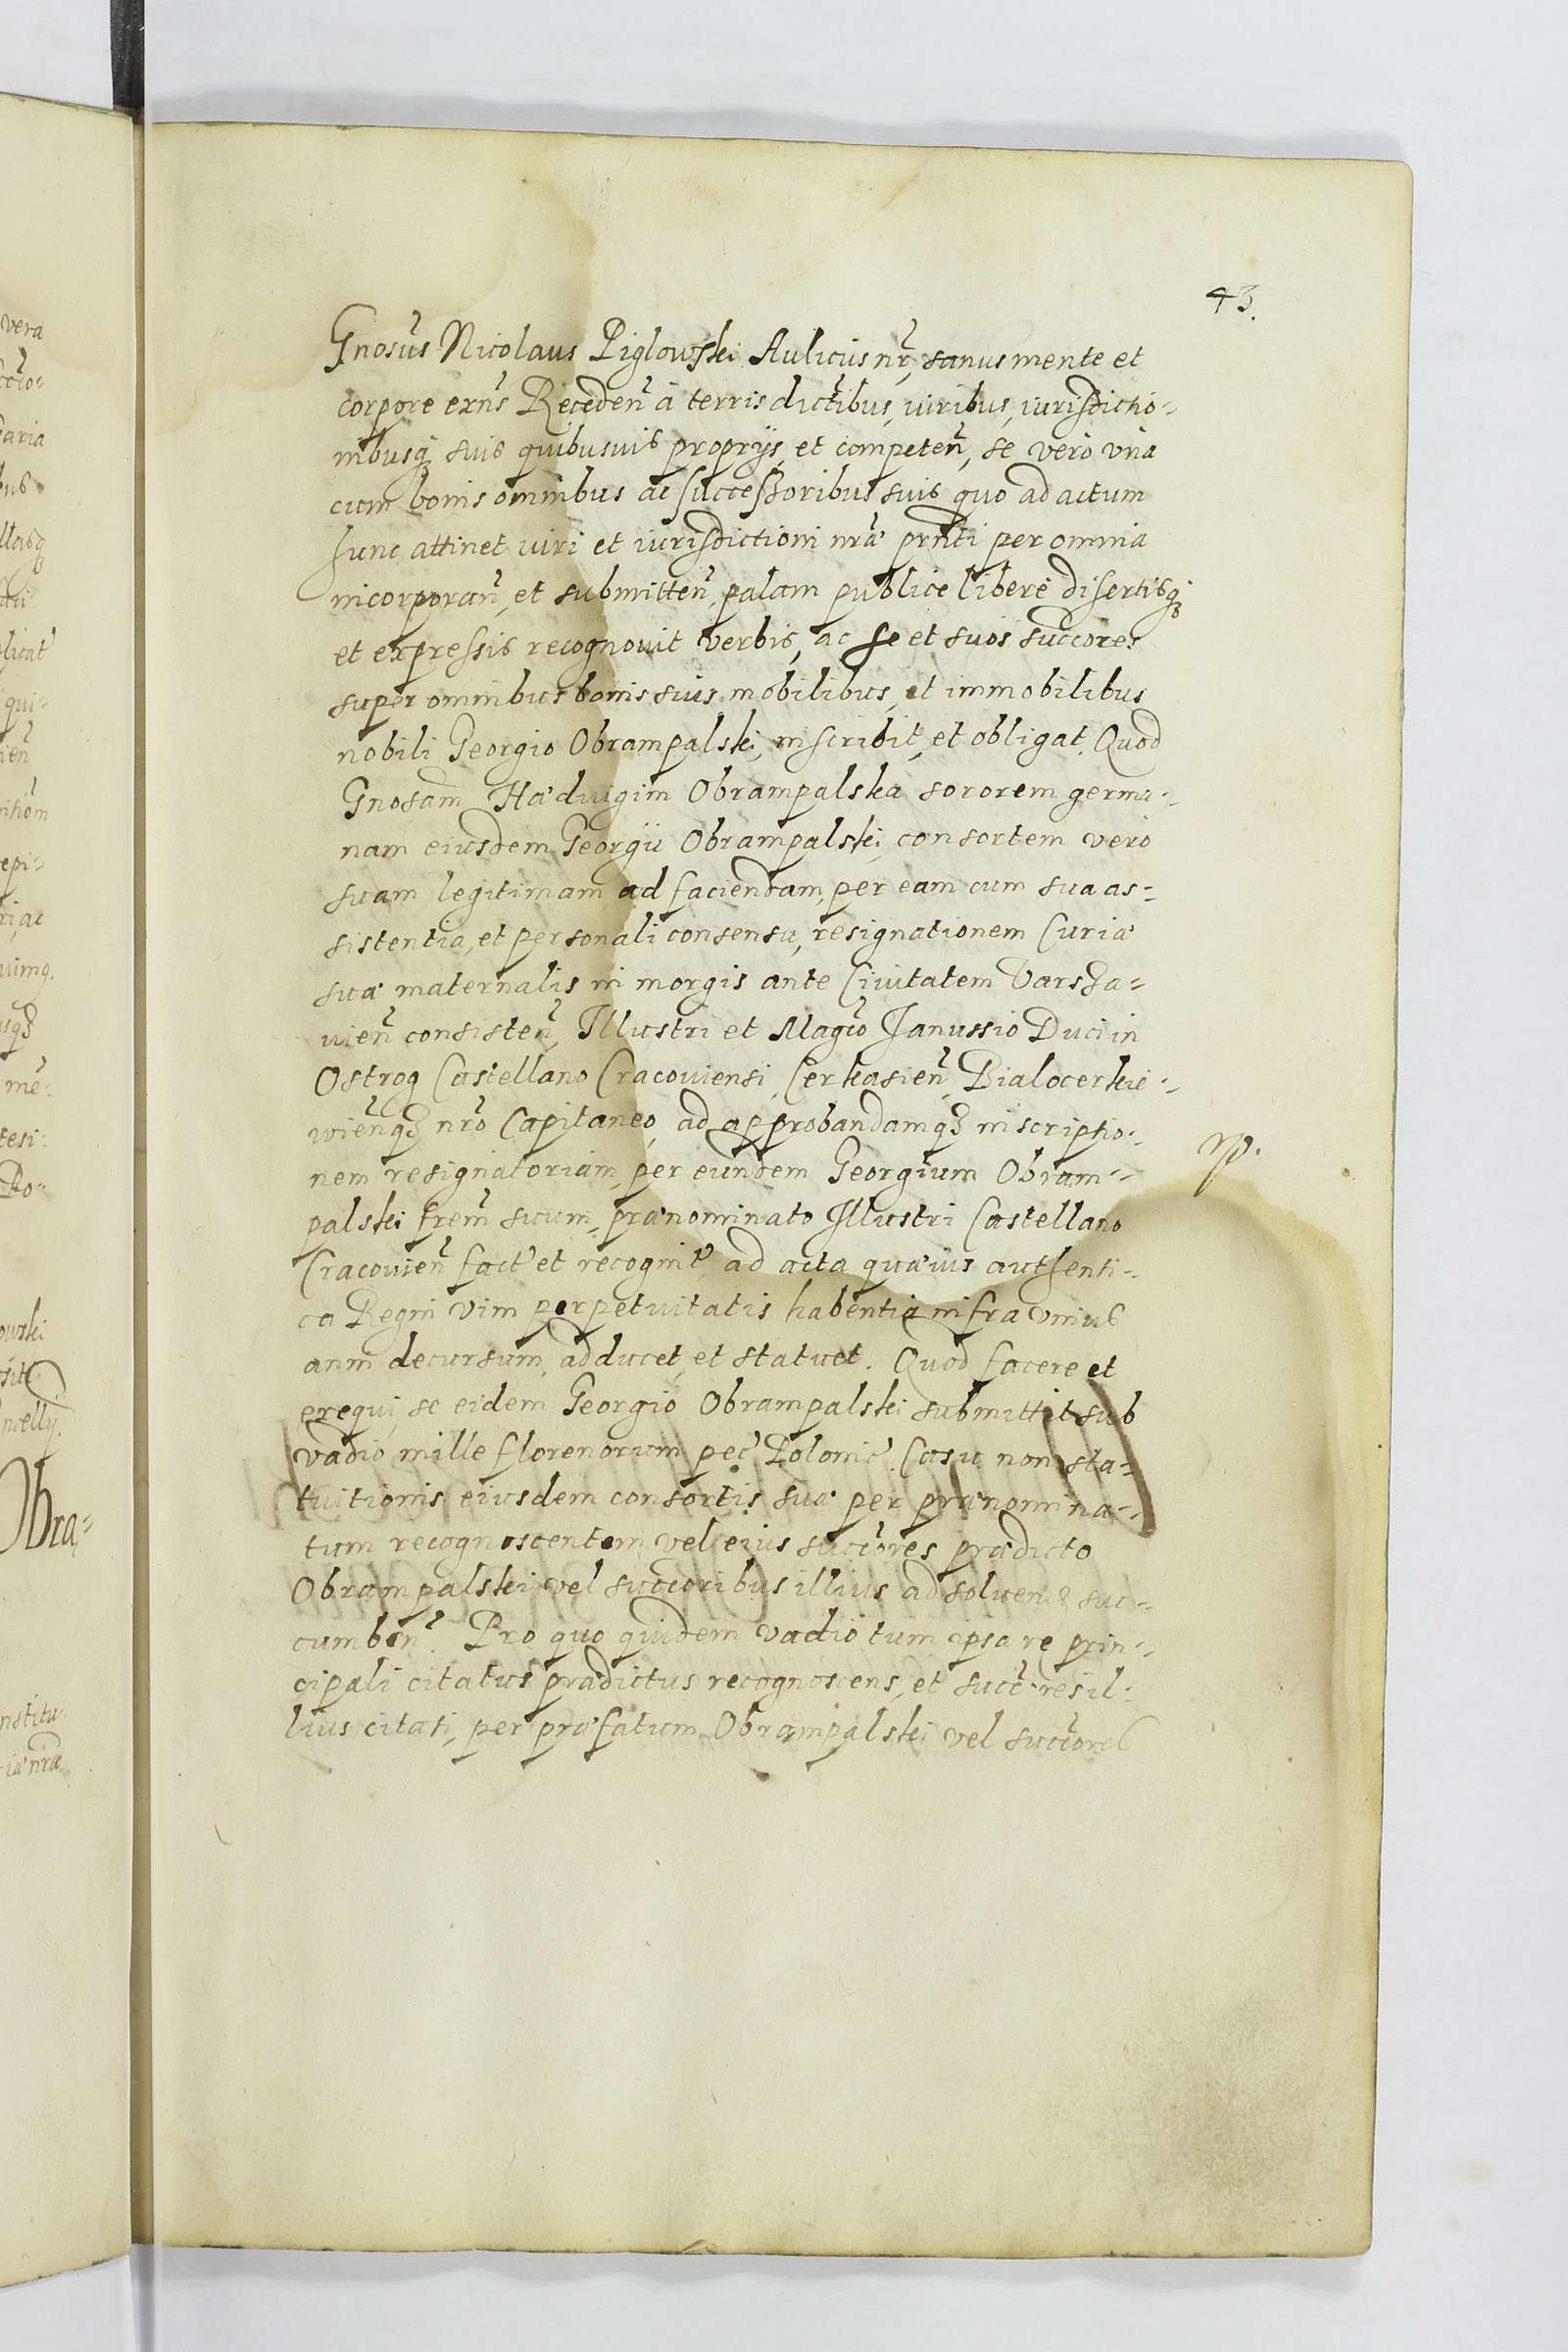 43.
Gnosus Nicolaus Piglowski Aulicus nr, sanus mente et
corpore exns Receden a terris dictibus, iuribus, iurisdictio-
nibusq suis quibusuis proprijs, et competen, se vero una
cum bonis omnibus ac successoribus suis quo ad actum
hunc attinet iuri et iurisdictioni nræ prnti per omnia
incorporan, et submitten, palam publice libere disertisq
et expressis recognouit verbis, ac se et suos succores
super omnibus bonis suis mobilibus, et immobilibus
nobili Georgio Obrampalski, inscribit, et obligat. Quod
Gnosam Hæduigim Obrampalska sororem germa-
nam eiusdem Georgii Obrampalski, consortem vero
suam legitimam ad faciendam, per eam cum sua as-
sistentia, et personali consensu, resignationem Curiæ
suæ maternalis in morgis ante Ciuitatem Varsza-
uien consisten, Illustri et Magco Janussio Duci in
Ostrog Castellano Cracouiensi, Cerkasien, Bialocerkie-
wienq nro Capitaneo, ad approbandamq inscriptio-
nem resignatoriam, per eundem Georgium Obram-
np.
palski frem suum, prænominato Illustri Castellano
Cracouien fact et recognit, ad acta quæuis authenti-
ca Regni vim perpetuitatis habentia infra unius
anni decursum, adducet, et statuet. Quod facere et
exequi, se eidem Georgio Obrampalski submittit sub
vadio mille florenorum pec Polonic. Casu non sta-
tuitionis eiusdem consortis suæ per prænomina-
tum recognoscentem vel eius succores prædicto
Obrampalski vel succoribus illius ad soluend suc-
cumben. Pro quo quidem vadio tum ipsa re prin-
cipali citatus prædictus recognoscens, et succores il-
lius citati, per præfatum Obrampalski vel succores